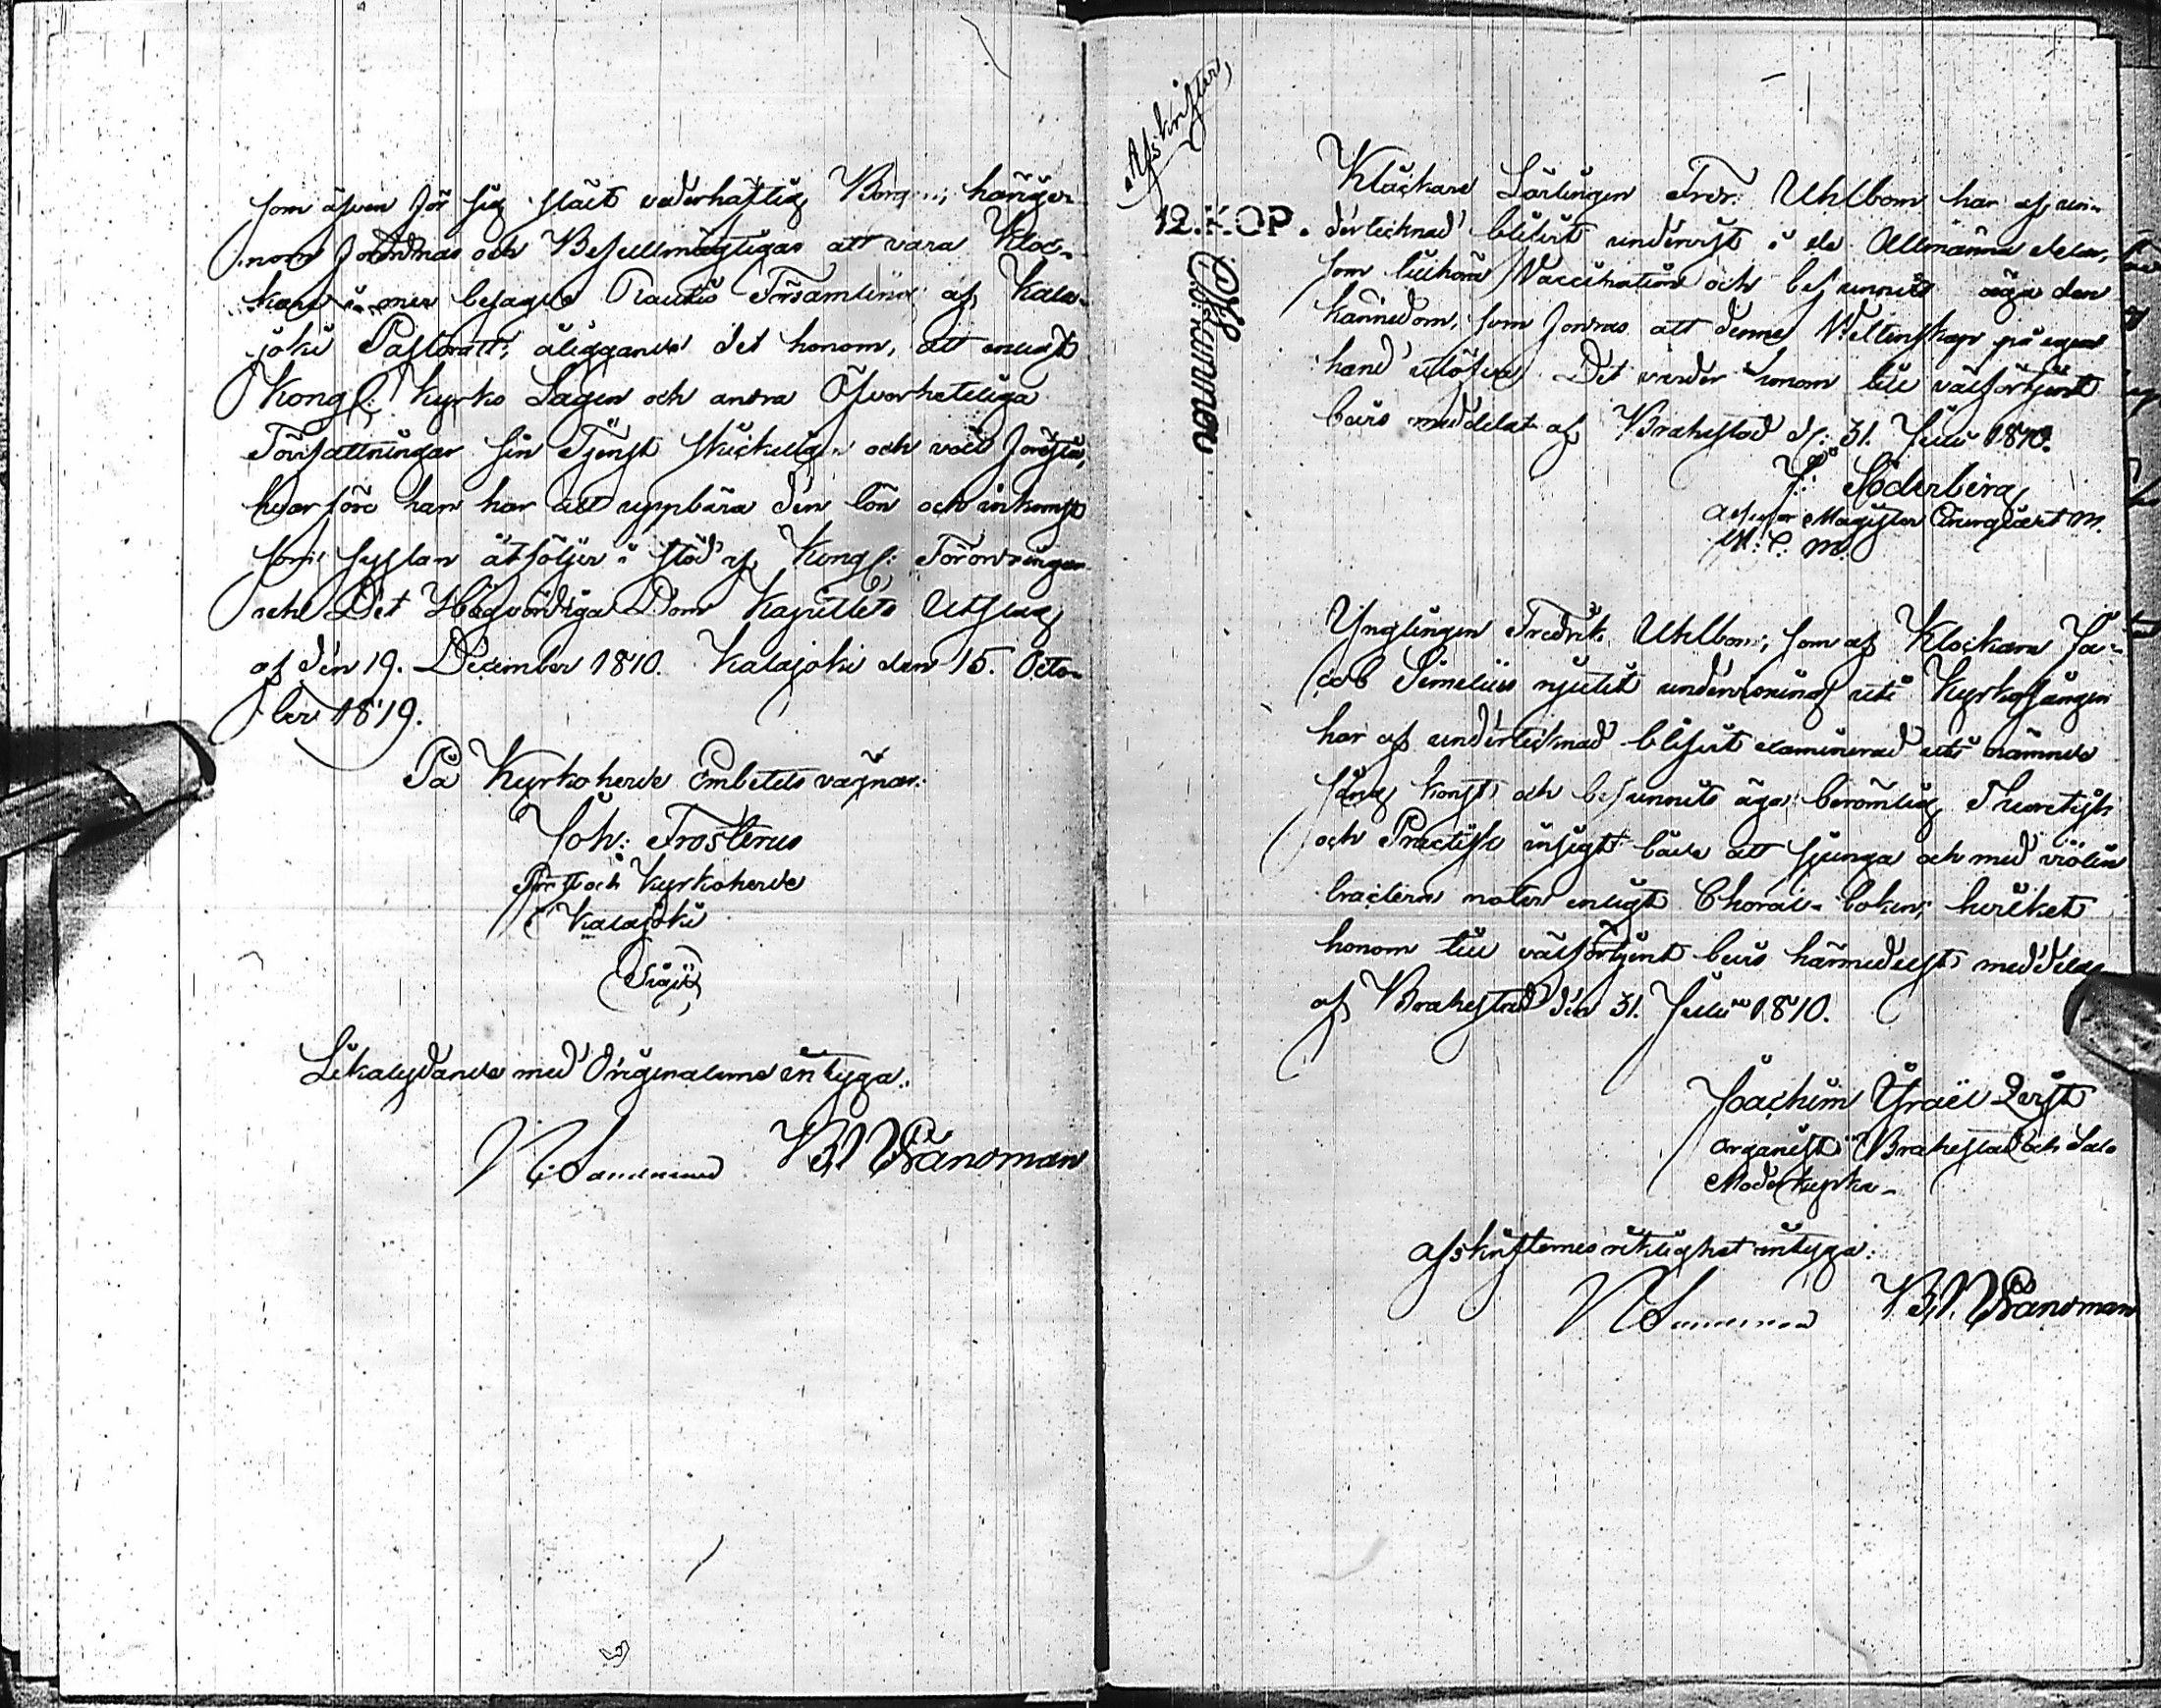 som äfven för sig stält vederhäftig Borgen; härige-
nom förordnas och Befullmägtigas att vara Kloc-
kare i mer besagde Rautio Församling af Kala-
joki Pastorat; åliggande det honom, att enligt
Kongl: Kyrko Lagen och andra Öfverhetliga
Författningar sin Tjenst skickelig och väl förestå,
hvarföre han har att uppbära den lön och inkomst
som syslan åtföljer i stöd af Kongl: Förordningar
och Det Högvördiga Dom Kapitlets Utslag
af den 19. December 1810. Kalajoki den 15. Octo-
ber 1819.
På Kyrkoherde Embetets vägnar:
Joh: Frosterus
Prost och Kyrkoherde
i Kalajoki
(Sigill)
Likalydande med Originalerne intyga:
BN Frandman
Afskrifter
12. KOP.
Klockare Lärlingen Fredr. Uhlbom har af un-
dertecknad blifvit undervist i de Allmänna delar,
som tillhöra Vaccination och befunnits äga den
kännedom, som fordras att denna Vettenskap på egen
hand utöfva. Det varder honom till välförtjent
bevis meddelat af Brahestad d: 31. Julii 1810.
J: Söderberg
Assessor Magister Chirurgiæ et M.
M: C: M:
Ynglingen Fredrik Uhlbom; som af Klockaren Ja-
cob Simelius njutit undervisning uti Kyrkosången
har af undertecknad blifvit examinerad uti nämnde
sång konst och befunnits äga berömlig Theoretisk
och Practisk insigt både att sjunga och med violin
tractera noter enligt Choral-boken; hvilket
honom till välförtjent bevis härmedelst meddelas
af Brahestad den 31. Julii 1810.
Joachim Israël
Organist i Brahestad och Salo
Moderkyrka-
Afskrifternes riktighet intyga:
BN. Frandman